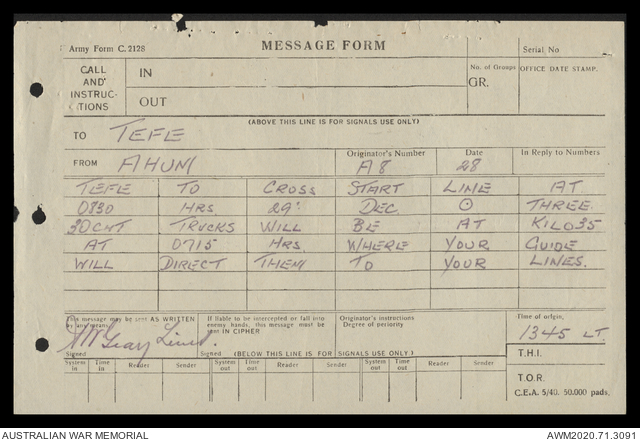 Army Form C.2128
MESSAGE FORM
Serial No
CALL AND INSTRUC-TIONS
IN
OUT
No. of Groups
GR.
OFFICE DATE STAMP.
(ABOVE THIS LINE IS FOR SIGNALS USE ONLY)
TO TEFE
FROM AHUM
Originator's Number
A8
Date
28
In Reply to Numbers
TEFE TO CROSS START LINE AT
0830 HRS 29 DEC ⊙ THREE
30CWT TRUCKS WILL BE AT KILO 35
AT 0715 HRS WHERE YOUR GUIDE
WILL DIRECT THEM TO YOUR LINES.
This message may be sent AS WRITTEN
by any means
If liable to be intercepted or fall into
enemy hands, this message must be
sent IN CIPHER
Originator's instructions
Degree of periority
Time of origin.
1345 LT.
Signed
Signed
(BELOW THIS LINE IS FOR SIGNALS USE ONLY.)
T.H.I.
System in
Time in
Reader
Sender
System out
Time out
Reader
Sender
System out
Time out
Reader
Sender
T.O.R.
C.E.A. 5/40. 50.000 pads.
AUSTRALIAN WAR MEMORIAL
AWM2020.71.3091